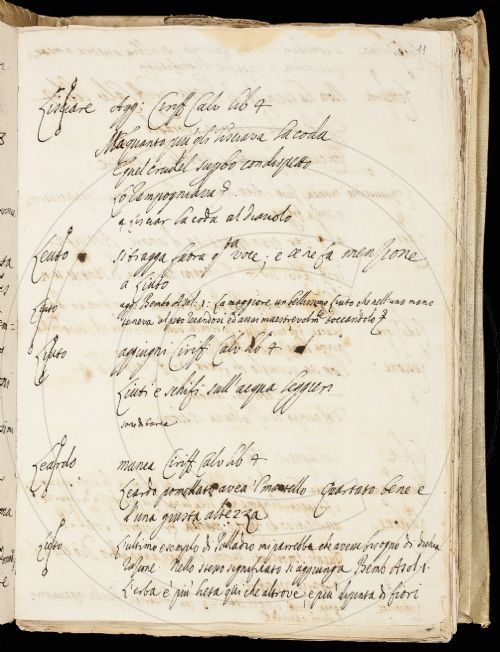 11
Lisciare Agg: Ciriff Calv lib 4
Ma quanto più gli lisciava la coda
E quel crudel superbo con dispetto
Lo zampognava
4 lisciar la coda al diavolo
Leuto si tragga fuora q.ta voce, e se ne fa menzione
a Liuto
Liuto agg. Bembo Asol. 1: La maggiore un bellissimo liuto che nell'una mano
teneva al petto recandosi ed assai maestrevolm.te toccandolo
Liuto aggiugni Ciriff Calv lib 4
Liuti e schifi sull'acqua leggieri
sorte di barca
Leardo manca Ciriff Calv lib 4
Leardo pomellato avea il mantello Quartato bene e
d'una giusta altezza
Lieto L'ultimo esempio di Palladio mi parrebbe che avesse bisogno di dichia
razione Nello stesso significato si aggiunga Bembo Asol 1.
L'erba è più lieta qui che altrove, e più dipinta di fiori